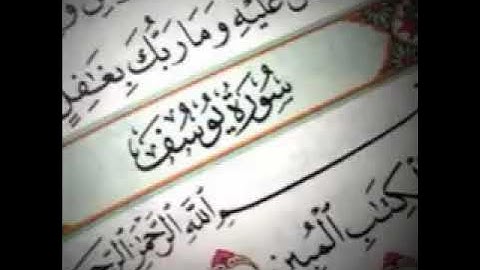 عَلَيْهِ وَمَا رَبُّكَ بِغَٰفِلٍ
سُورَةُ يُوسُفَ
ـسْمِ اللَّهِ الرَّحْمَٰنِ الرَّحِيـ
الْكِتَٰبِ الْمُبِينِ